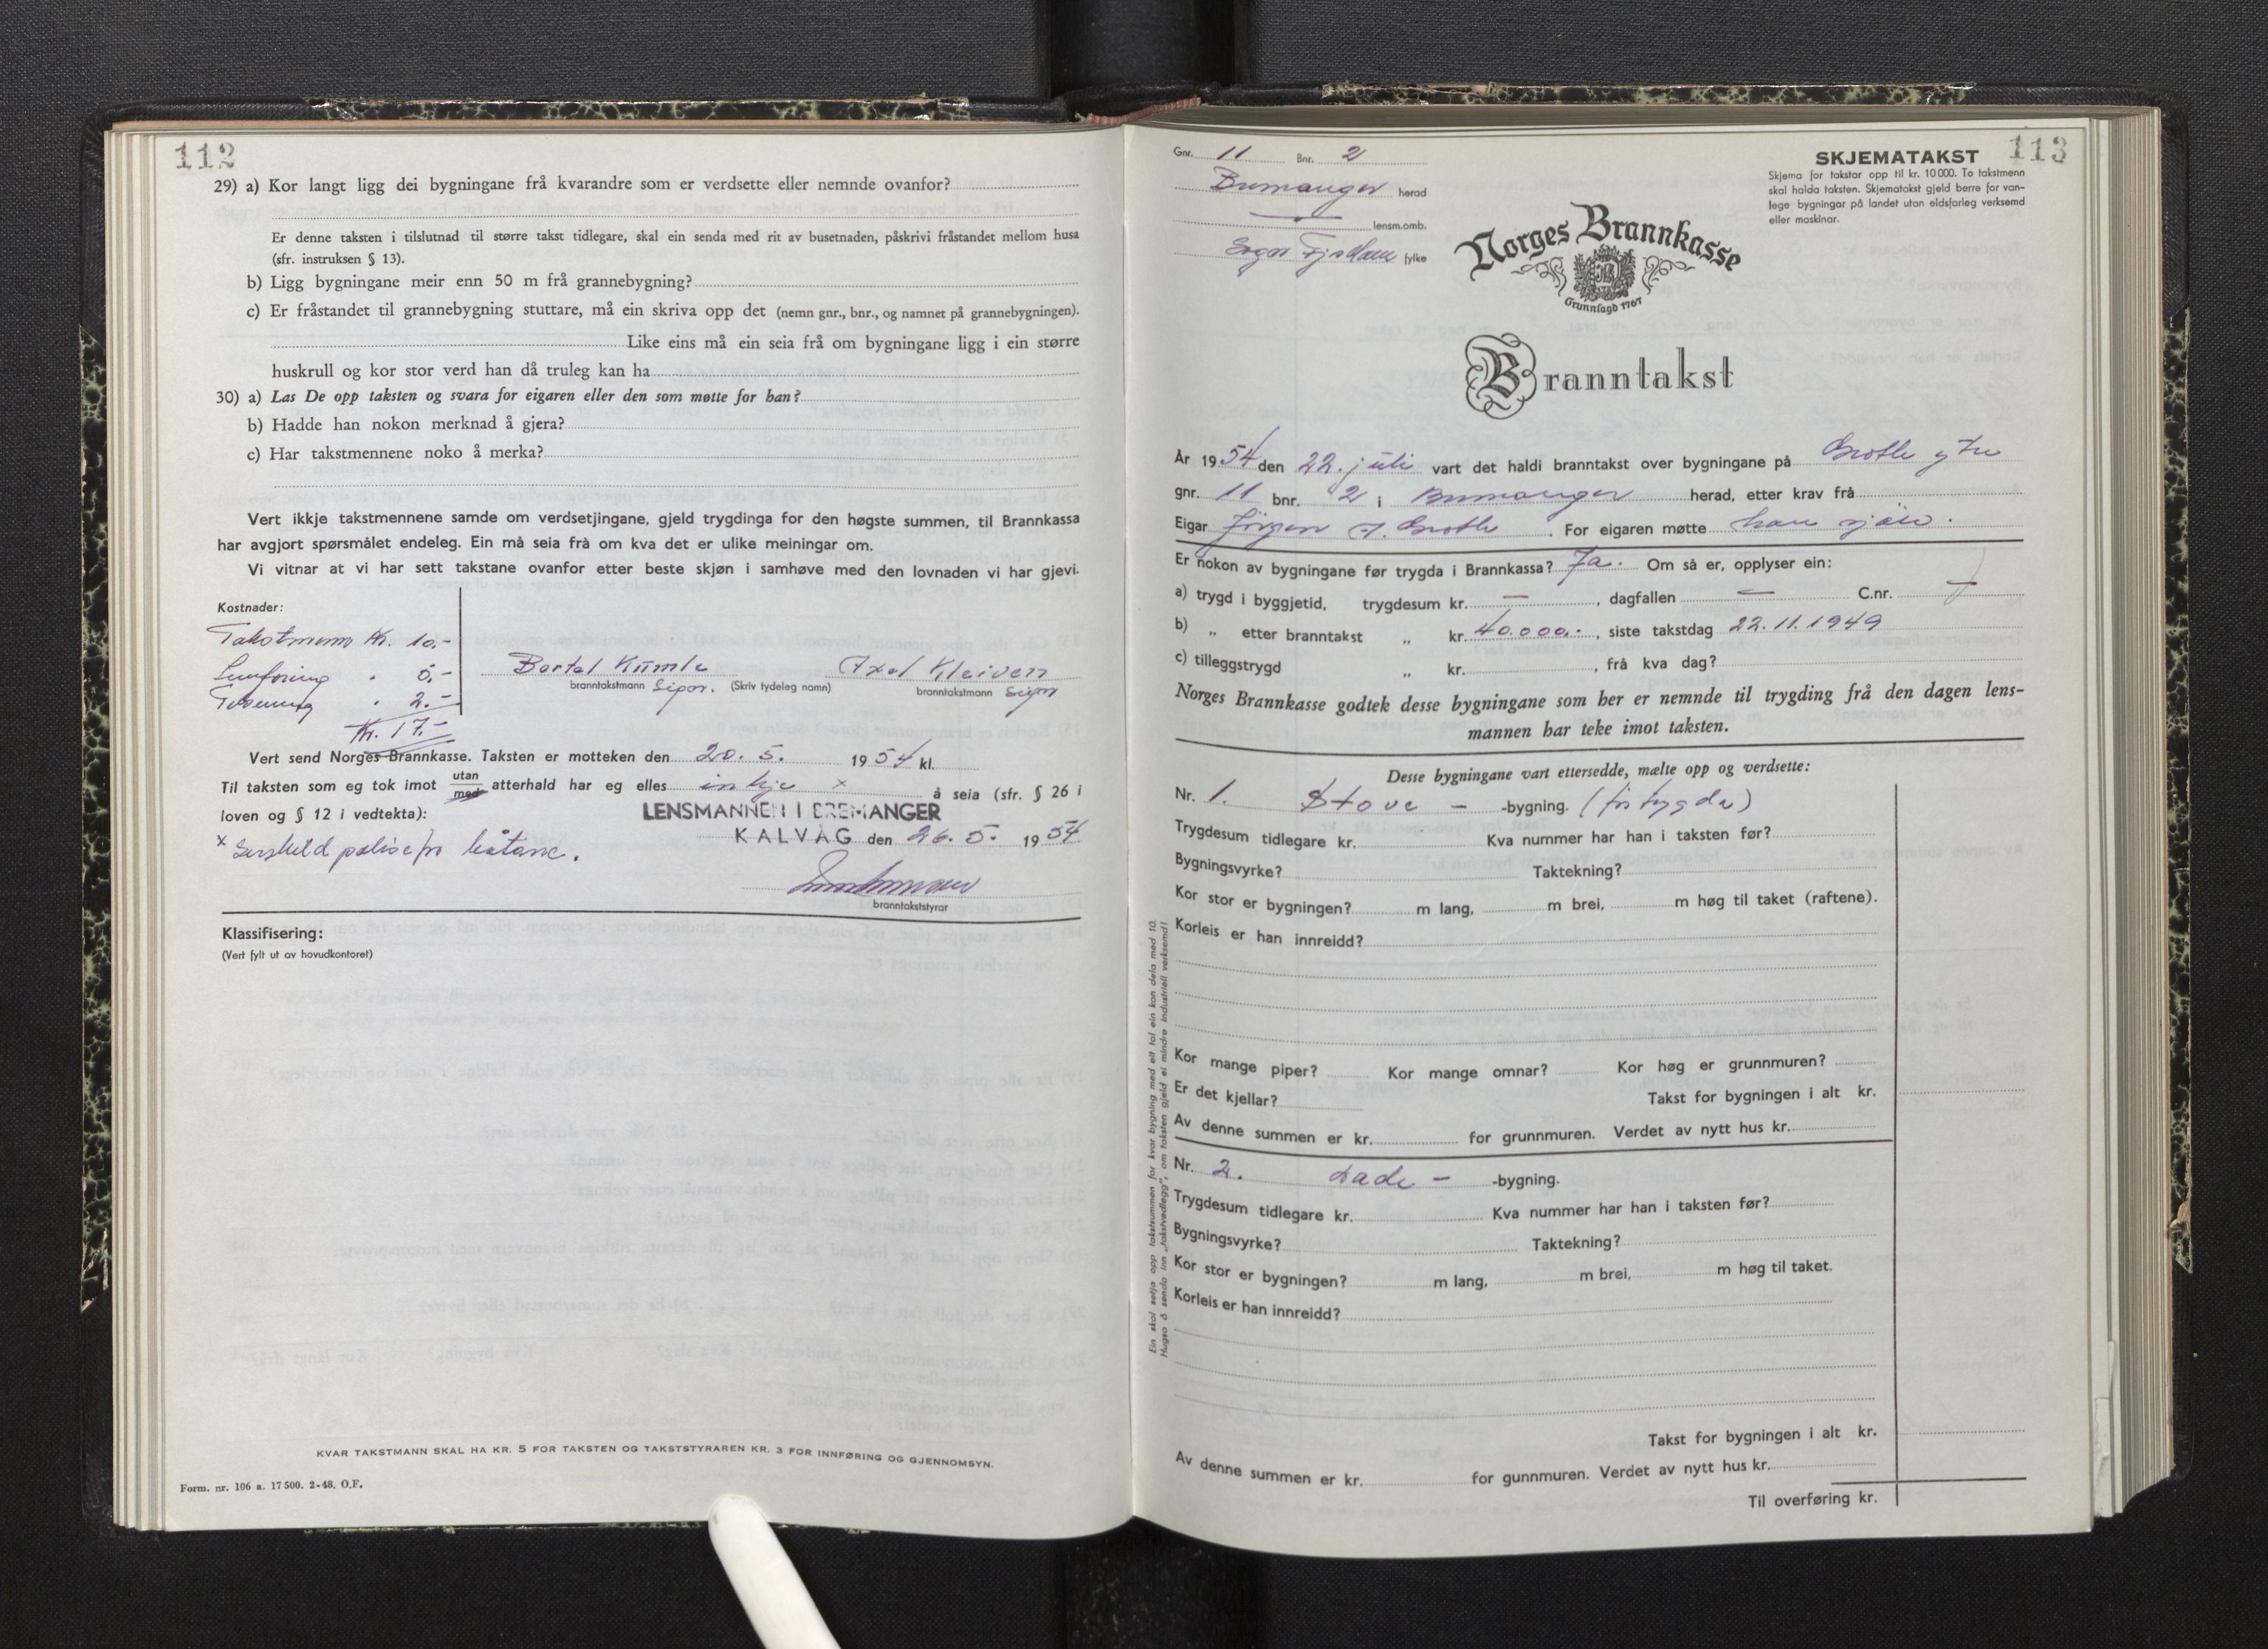 112
29) a) Kor langt ligg dei bygningane frå kvarandre som er verdsette eller nemnde ovanfor?
Er denne taksten i tilslutnad til større takst tidlegare, skal ein senda med rit av busetnaden, påskrivi fråstandet mellom husa
(sfr. instruksen § 13).
b) Ligg bygningane meir enn 50 m frå grannebygning?
c) Er fråstandet til grannebygning stuttare, må ein skriva opp det (nemn gnr., bnr., og namnet på grannebygningen).
Like eins må ein seia frå om bygningane ligg i ein større
huskrull og kor stor verd han då truleg kan ha
30) a) Las De opp taksten og svara for eigaren eller den som møtte for han?
b) Hadde han nokon merknad å gjera?
c) Har takstmennene noko å merka?
Vert ikkje takstmennene samde om verdsetjingane, gjeld trygdinga for den høgste summen, til Brannkassa
har avgjort spørsmålet endeleg. Ein må seia frå om kva det er ulike meiningar om.
Vi vitnar at vi har sett takstane ovanfor etter beste skjøn i samhøve med den lovnaden vi har gjevi.
Kostnader:
Takstmenn kr. 10.-
Innföring " 5,-
" 2.-
Kr. 17.-
Bertel Kumle Axel Kleiven
branntakstmann Sign. (Skriv tydeleg namn) branntakstmann Sign
Vert send Norges Brannkasse. Taksten er motteken den 20. 5. 1954 kl.
Til taksten som eg tok imot utan med atterhald har eg elles inkje x å seia (sfr. § 26 i
loven og § 12 i vedtekta):
LENSMANNEN I BREMANGER
KALVÅG den 26. 5. 1954
x Serskild polise for
branntakststyrar
Klassifisering:
(Vert fylt ut av hovudkontoret)
KVAR TAKSTMANN SKAL HA KR. 5 FOR TAKSTEN OG TAKSTSTYRAREN KR. 3 FOR INNFØRING OG GJENNOMSYN.
Form. nr. 106 a. 17 500. 2-48. O.F.
113
Gnr. 11 Bnr. 2
Bremanger herad
— lensm.omb.
Sogn Fjordane fylke
SKJEMATAKST
Skjema for takstar opp til kr. 10 000. To takstmenn
skal halda taksten. Skjematakst gjeld berre for van-
lege bygningar på landet utan eldsfarleg verksemd
eller maskinar.
Norges Brannkasse
Grunnlagd 1767
Branntakst
År 1954 den 22. juli vart det haldi branntakst over bygningane på Grotle ytre
gnr. 11 bnr. 2 i Bremanger herad, etter krav frå
Eigar Jörgen A. Grotle. For eigaren møtte han sjölv.
Er nokon av bygningane før trygda i Brannkassa? Ja. Om så er, opplyser ein:
a) trygd i byggjetid, trygdesum kr. — , dagfallen — C.nr. —
b) „ etter branntakst „ kr. 40.000.-, siste takstdag 22.11.1949
c) tilleggstrygd „ kr. , frå kva dag?
Norges Brannkasse godtek desse bygningane som her er nemnde til trygding frå den dagen lens-
mannen har teke imot taksten.
Desse bygningane vart ettersedde, mælte opp og verdsette:
Nr. 1. Stove - -bygning. (før trygda)
Trygdesum tidlegare kr. Kva nummer har han i taksten før?
Bygningsvyrke? Taktekning?
Kor stor er bygningen? m lang, m brei, m høg til taket (raftene).
Korleis er han innreidd?
Kor mange piper? Kor mange omnar? Kor høg er grunnmuren?
Er det kjellar? Takst for bygningen i alt kr.
Av denne summen er kr. for grunnmuren. Verdet av nytt hus kr.
Nr. 2. Lade - -bygning.
Trygdesum tidlegare kr. Kva nummer har han i taksten før?
Bygningsvyrke? Taktekning?
Kor stor er bygningen? m lang, m brei, m høg til taket.
Korleis er han innreidd?
Takst for bygningen i alt kr.
Av denne summen er kr. for gunnmuren. Verdet av nytt hus kr.
Til overføring kr.
Ein skal setja opp takstsummen for kvar bygning med eit tal ein kan dela med 10.
Hugsa å senda inn „takstvedlegg", om taksten gjeld ei mindre industriell verksemd!